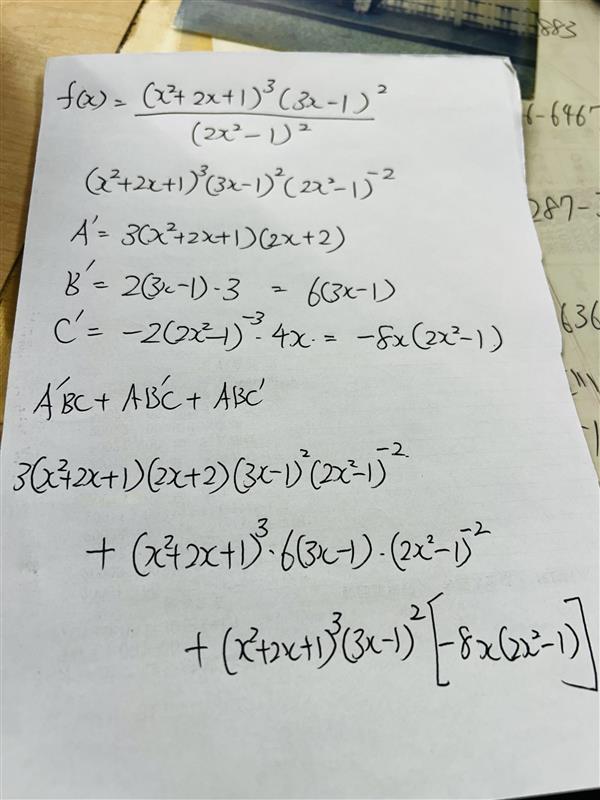 f(x) = (x²+2x+1)³(3x-1)² / (2x²-1)²
883
6-6467
(x²+2x+1)³(3x-1)²(2x²-1)⁻²
287-
A' = 3(x²+2x+1)(2x+2)
B' = 2(3x-1)·3 = 6(3x-1)
C' = -2(2x²-1)⁻³·4x. = -8x(2x²-1)
636
A'BC + AB'C + ABC'
3(x²+2x+1)(2x+2)(3x-1)²(2x²-1)⁻².
+ (x²+2x+1)³·6(3x-1)·(2x²-1)⁻²
+ (x²+2x+1)³(3x-1)²[-8x(2x²-1)]